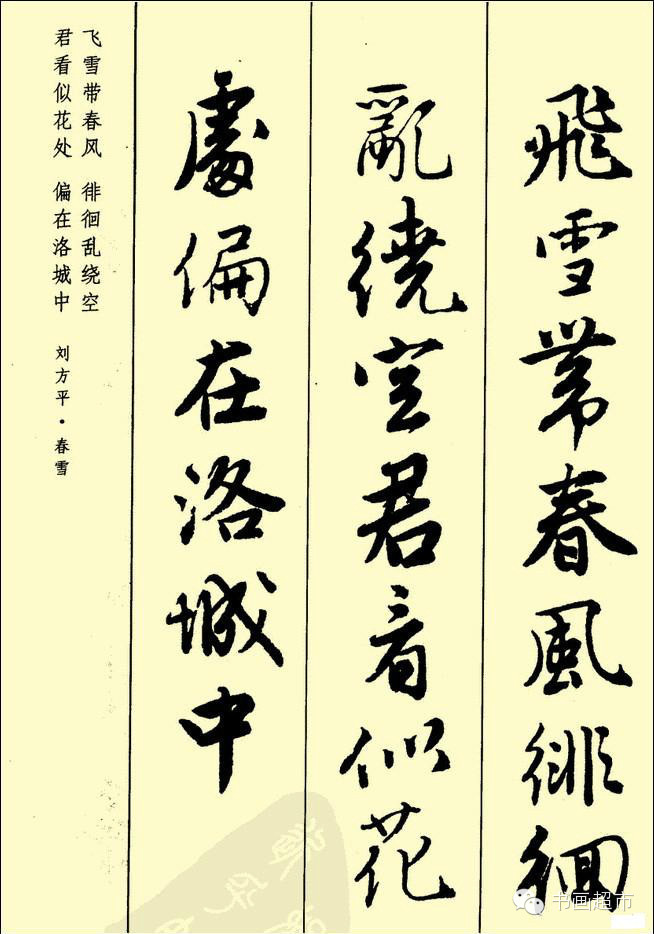 飛雪帶春風徘徊
亂繞空君看似花
處偏在洛城中
飞雪带春风 徘徊乱绕空
君看似花处 偏在洛城中 刘方平·春雪
书画超市